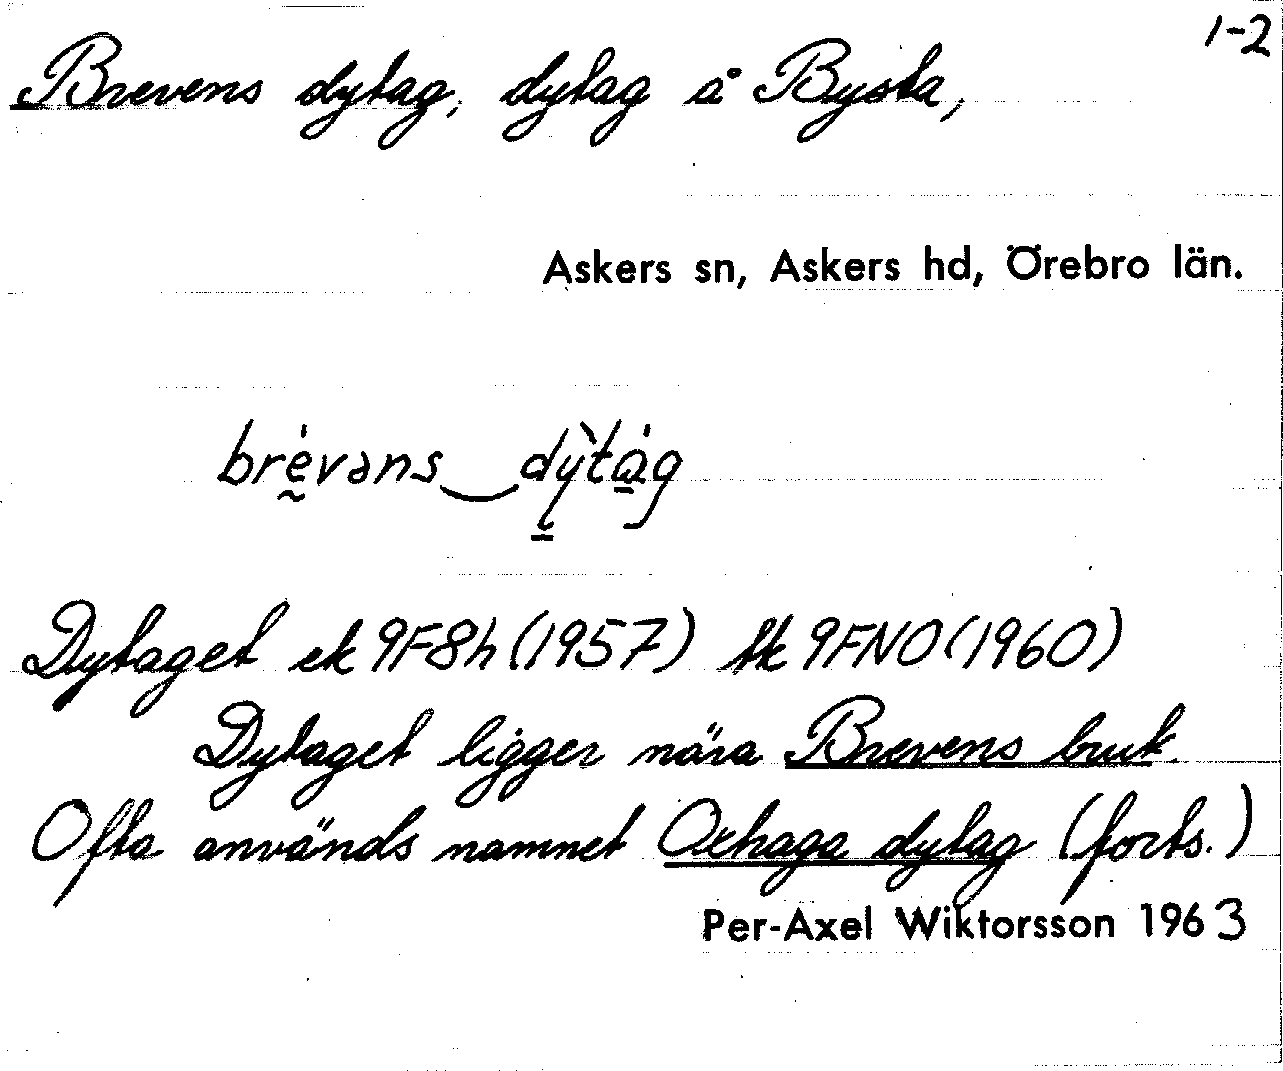 1-2
Brevens dytag, dytag å Bysta,
Askers sn, Askers hd, Örebro län.
brèvəns dỳtág
Dytaget ek 9F8h (1957) tk 9FNO (1960)
Dytaget ligger nära Brevens bruk.
Ofta används namnet Oxhaga dytag (forts.)
Per-Axel Wiktorsson 1963